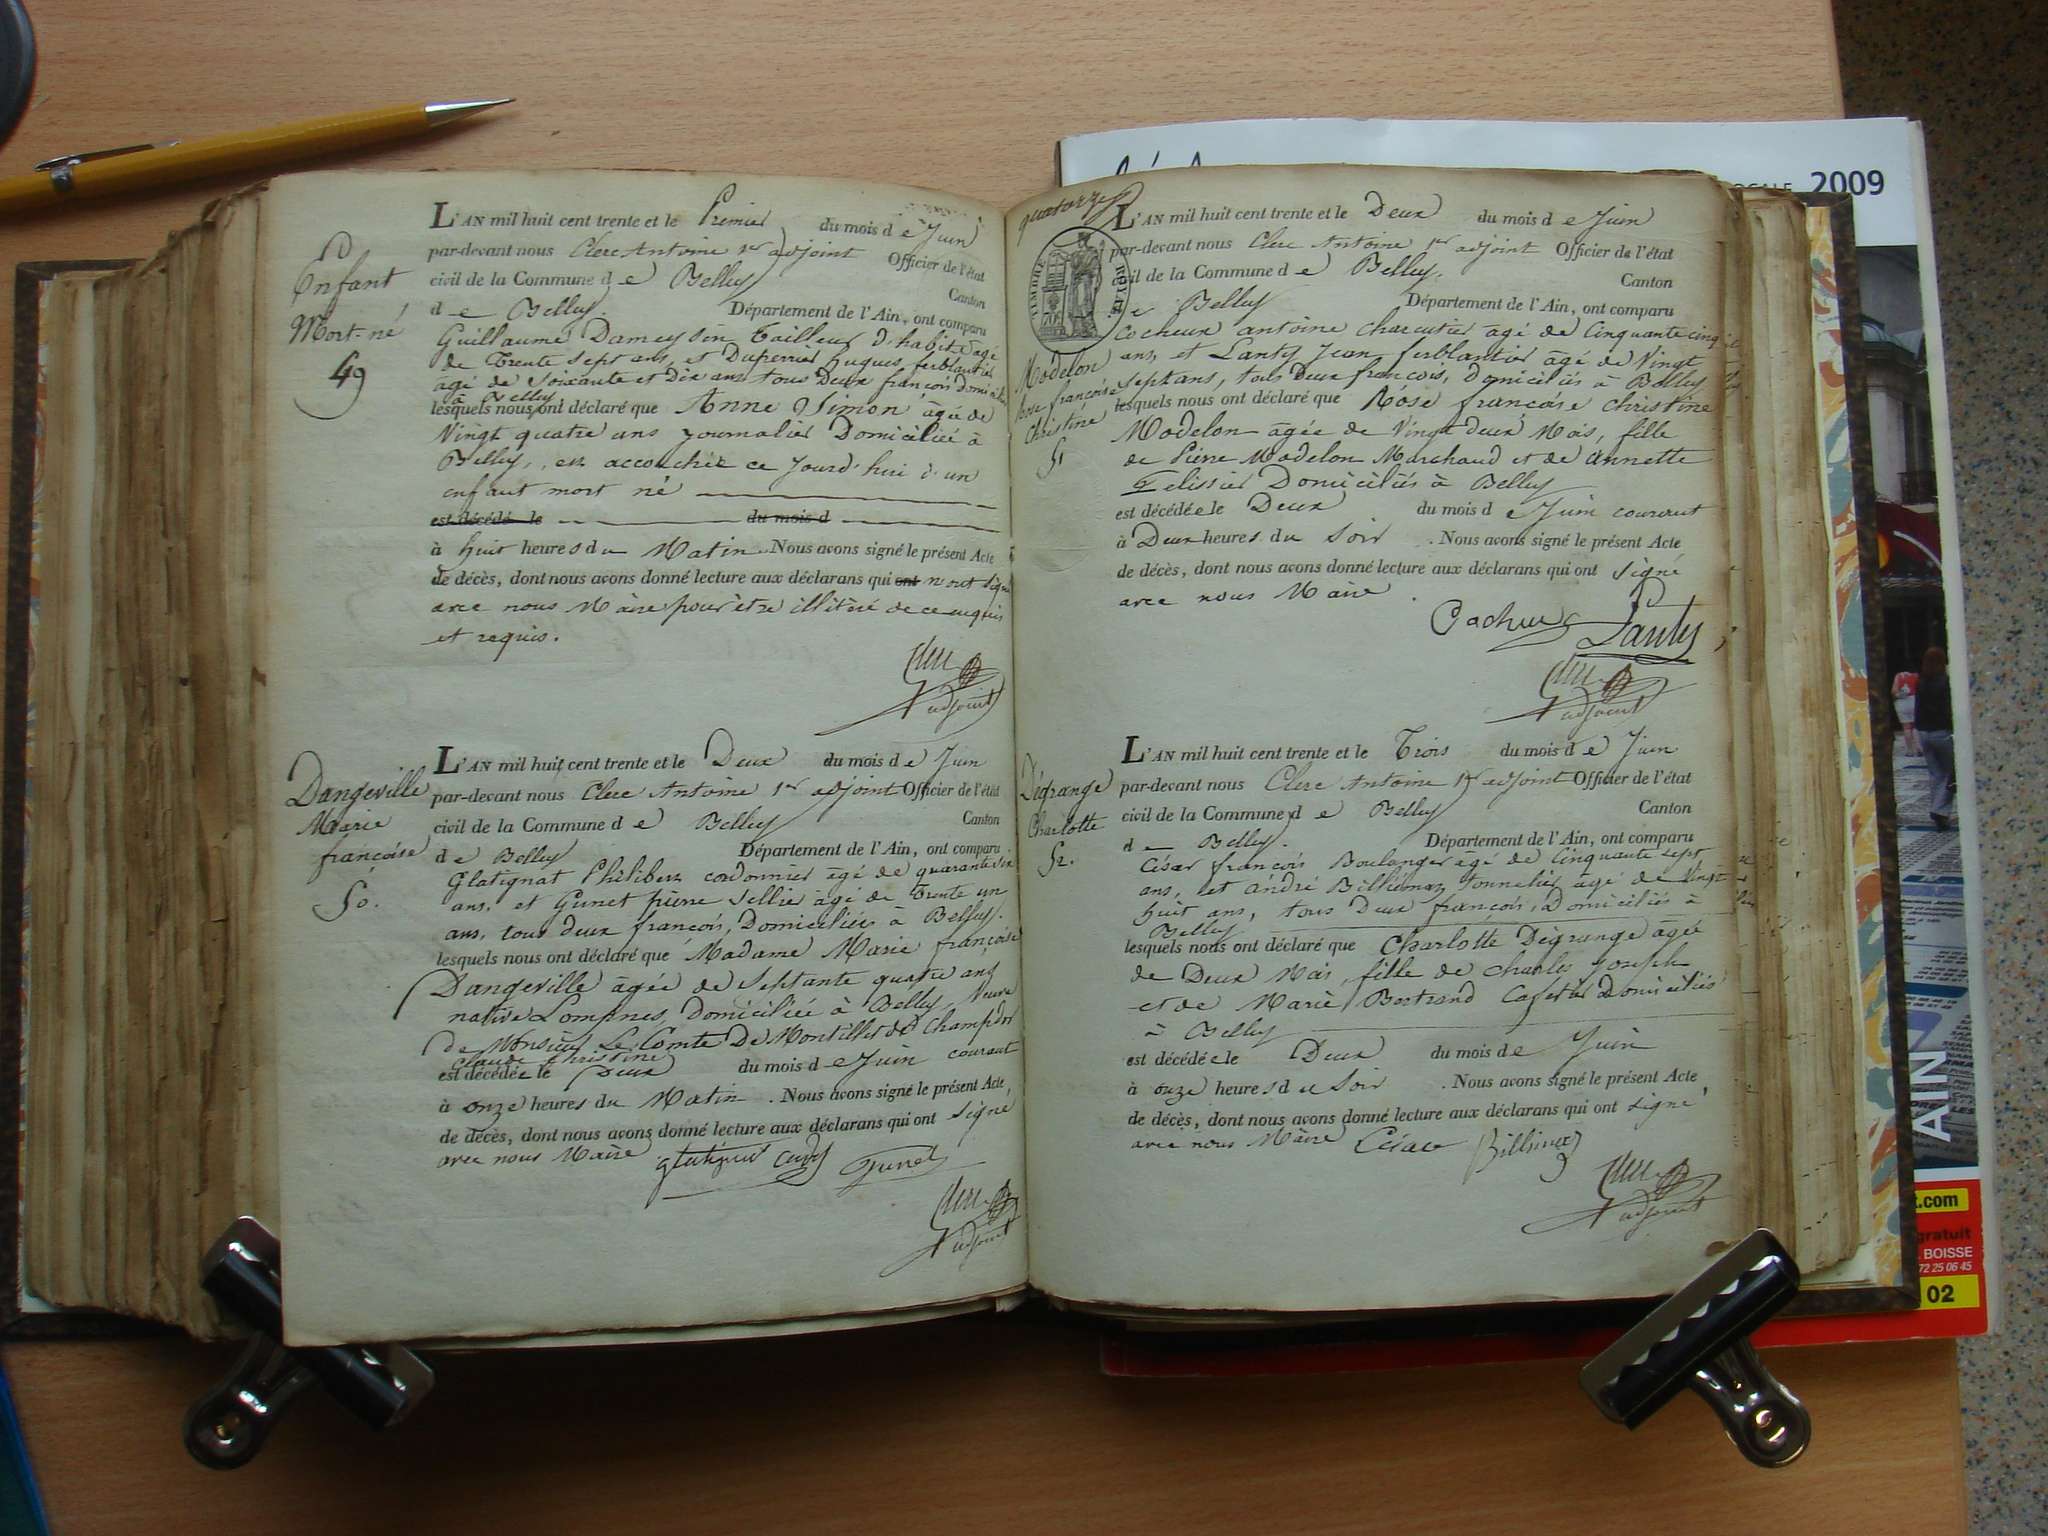 Enfant
Mort-né
49
L'AN mil huit cent trente et le Premier du mois d e Juin
par-devant nous Clerc Antoine 1er adjoint Officier de l'état
civil de la Commune d e Belley Canton
d e Belley. Département de l'Ain, ont comparu
Guillaume Dameysin Tailleur d'habits agé
de Trente sept ans, et Duperrier hugues ferblantier
agé de Soixante et Dix ans tous Deux françois domiciliés
à Belley
lesquels nous ont déclaré que Anne Simon âgée de
Vingt quatre ans journalier Domiciliée à
Belley, est accouchée ce jourd'hui d'un
enfaut mort né
est décédé le du mois d
à huit heures du Matin. Nous avons signé le présent Acte
de décès, dont nous avons donné lecture aux déclarans qui ont n'ont signé
avec nous Maire pour être illitéré de ce enquis
et requis.
Clerc
adjoint
Dangeville
Marie
françoise
50.
L'AN mil huit cent trente et le Deux du mois d e Juin
par-devant nous Clerc Antoine 1er adjoint Officier de l'état
civil de la Commune d e Belley Canton
d e Belley Département de l'Ain, ont comparu
Glatignat Philibert cordonnier âgé de quarante six
ans, et Gunet pierre Sellié âgé de Trente un
ans, tous deux françois, Domiciliés à Belley.
lesquels nous ont déclaré que Madame Marie françoise
Dangeville âgée de Septante quatre ans
native Lompnes, Domiciliée à Belley, Veuve
de Monsieur Le Comte De Montillet de Champdor
Claude Christine
est décédée le Deux du mois d e Juin courant
à onze heures du Matin. Nous avons signé le présent Acte
de décès, dont nous avons donné lecture aux déclarans qui ont signé
avec nous Maire glatignat Gunet
Clerc
adjoint
quatorze
TIMBRE ROYAL
Modelon
Rose françoise
Christine
51
L'AN mil huit cent trente et le Deux du mois d e Juin
par-devant nous Clerc Antoine 1er adjoint Officier de l'état
civil de la Commune d e Belley. Canton
de Belley Département de l'Ain, ont comparu
Cocheux antoine charcutier âgé de Cinquante cinq
ans, et Lanty Jean ferblantier âgé de Vingt
Sept ans, tous Deux françois, Domiciliés à Belley
lesquels nous ont déclaré que Rose françoise christine
Modelon âgée de Vingt deux Mois, fille
de Pierre Modelon Marchaud et de annette
Telissier Domiciliés à Belley
est décédée le Deux du mois d e Juin courant
à Deux heures du Soir. Nous avons signé le présent Acte
de décès, dont nous avons donné lecture aux déclarans qui ont signé
avec nous Maire.
Cocheux Lanty
Clerc
adjoint
Dégrange
Charlotte
52.
L'AN mil huit cent trente et le Trois du mois d e Juin
par-devant nous Clerc Antoine 1er adjoint Officier de l'état
civil de la Commune d e Belley Canton
d e Belley. Département de l'Ain, ont comparu
César françois Boulanger âgé de Cinquante sept
ans, et andré Billiémaz tonnelier âgé de Vingt
huit ans, tous Deux françois, Domiciliés à
Belley
lesquels nous ont déclaré que Charlotte Dégrange agée
de Deux Mois, fille de charles joseph
et de Marie Bertrand Cafetier Domiciliés
à Belley
est décédée le Deux du mois d e Juin
à onze heures du Soir. Nous avons signé le présent Acte
de décès, dont nous avons donné lecture aux déclarans qui ont signé
avec nous Maire César Billiemaz
Clerc
adjoint
2009
AIN
t.com
gratuit
BOISSE
72 25 06 45
02